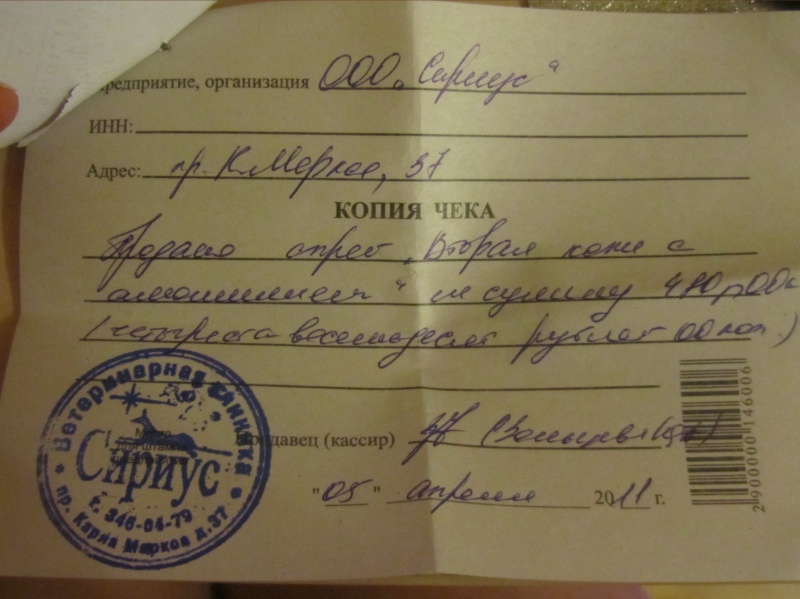 предприятие, организация ООО "Сириус"
ИНН:
Адрес: пр. К.Маркса, 37
КОПИЯ ЧЕКА
Продано спрей "Вторая кожа с
алюминием" на сумму 480р00к
(четыреста восемьдесят рублей 00 коп.)
Продавец (кассир)
"05" апреля 2011 г.
Ветеринарная клиника
Сириус
т. 346-64-79
пр. Карла Маркса д.37
2900000146006